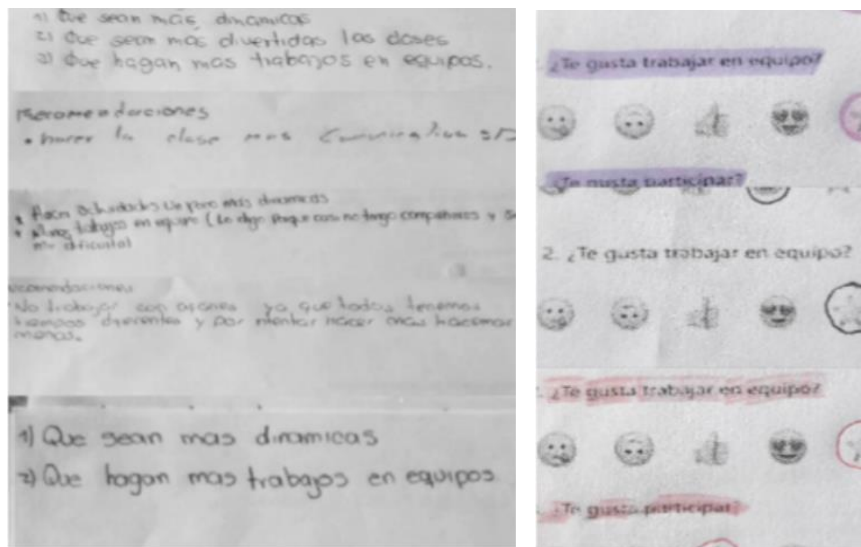 1) Que sean más dinámicas
2) Que sean más divertidas las clases
3) Que hagan mas trabajos en equipos.
Recomendaciones
• hacer la clase mas
mas dinamicas
trabajos en equipo (Lo digo porque casi no tengo compañeros y se
me dificulta)
No trabajar con ya que todos tenemos
tiempos diferentes y por intentar hacer mas hacemos
menos.
1) Que sean mas dinamicas
2) Que hagan mas trabajos en equipos
¿Te gusta trabajar en equipo?
¿Te gusta participar?
2. ¿Te gusta trabajar en equipo?
¿Te gusta trabajar en equipo?
¿Te gusta participar?